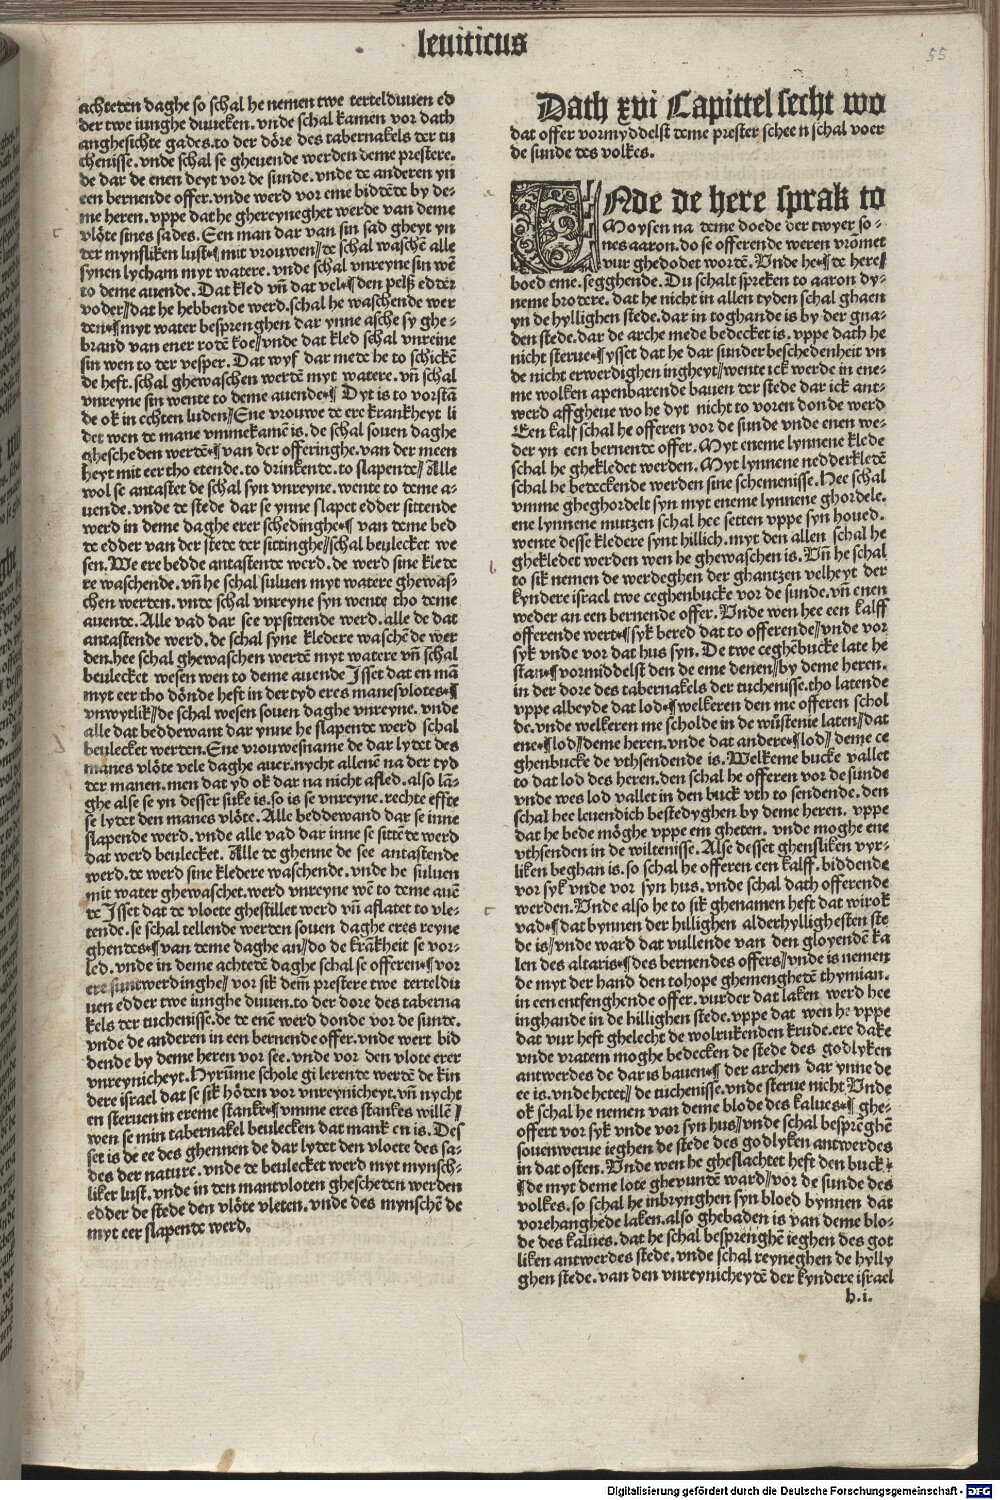 leuiticus
55
achteten daghe so schal he nemen twe terteldunen ed
der twe iunghe duueken. vnde schal kamen vor dath
anghesichte gades. to der döre des tabernakels ter tu
chenisse. vnde schal se gheuende werden deme prestere.
de dar de enen deyt vor de sunde. vnde de anderen yn
een bernende offer. vnde werd vor eme biddēte by de-
me heren. vppe dathe ghereyneghet werde van deme
vlöte sines sades. Een man dar van sin sad gheyt yn
der mynsliken lust•¶mit vrouwen/te schal waschē alle
synen lycham myt watere. vnde schal vnreyne sin wē
to deme auende. Dat kled vn̄ dat vel•¶den pelß edder
voder/dat he hebbende werd. schal he waschende wer
den•¶myt water besprenghen dar ynne asche sy ghe-
brand van ener rodē koe/vnde dat kled schal vnreine
sin wen to der vesper. Dat wyf dar mede he to schickē
de heft. schal ghewaschen werdē myt watere. vn̄ schal
vnreyne sin wente to deme auende•¶Dyt is to vorstā
de ok in echten luden/Ene vrouwe te ere krankheyt li
det wen de mane vmmekamē is. de schal souen daghe
ghescheden werdē•¶van der offeringhe. van der meen
heyt mit eer tho etende. to drinkende. to slapente/Alle
wol se antastet de schal syn vnreyne. wente to deme a-
uende. vnde te stede dar se ynne slapet edder sittende
werd in deme daghe erer schedinghe•¶van deme bed
te edder van der stede ter sittinghe/schal beulecket we
sen. We ere bedde antastende werd. de werd sine klede
re waschende. vn̄ he schal suluen myt watere ghewaß-
chen werden. vnde schal vnreyne syn wente tho deme
auende. Alle vad dar see vpsittende werd. alle de dat
antastende werd. de schal syne kledere waschē de wer
den. hee schal ghewaschen werdē myt watere vn̄ schal
beulecket wesen wen to deme auende Isset dat en mā
myt eer tho dönde heft in der tyd eres manesvlotes•¶
vnwytlik/de schal wesen souen daghe vnreyne. vnde
alle dat beddewant dar ynne he slapende werd schal
beulecket werden. Ene vrouwesname de dar lydet des
manes vlöte vele daghe auer. nycht allenē na der tyd
der manen. men dat yd ok dar na nicht afled. also lā-
ghe alse se yn desser suke is. so is se vnreyne. rechte effte
se lydet den manes vlöte. Alle beddewand dar se inne
slapende werd. vnde alle vad dar inne se sittēde werd
dat werd beulecket. Alle te ghenne de see antastende
werd. te werd sine kledere waschende. vnde he suluen
mit water ghewaschet. werd vnreyne wē to deme auē
de Isset dat te vloete ghestillet werd vn̄ aflatet to vle-
tende. se schal tellende werden souen daghe eres reyne
ghendes•¶van deme daghe an/do de krākheit se vor-
led. vnde in deme achtetē daghe schal se offeren•¶vor
ere suntwerdinghe/vor sik dem̄ prestere twe terteldu
uen edder twe iunghe duuen. to der dore des taberna
kels ter tuchenisse. de te enē werd donde vor de sunde.
vnde de anderen in een bernende offer. vnde wert bid
dende by deme heren vor see. vnde vor den vlote erer
vnreynicheyt. Hyrūme schole gi lerente werdē de kin
dere israel dat se sik höten vor vnreynicheyt. vn̄ nycht
en steruen in ereme stanke•¶vmme eres stankes willē/
wen se min tabernakel beulecken dat mank en is. Des
set is de ee des ghennen de dar lydet den vloete des sa-
des der nature. vnde te beulecket werd myt mynsch-
liker lust. vnde in den mantvloten ghescheden werden
edder de stede den vlöte vleten. vnde des mynschē de
myt eer slapente werd.
Dath xvi Capittel secht wo
dat offer vormyddelst teme prester schee n schal voer
de sunde tes volkes.
VNde de here sprak to
Moysen na teme doede der twyer so-
nes aaron. do se offerende weren vromet
vur ghedodet wordē. Vnde he•¶te here/
boed eme. segghende. Du schalt spreken to aaron dy-
neme brodere. dat he nicht in allen tyden schal ghaen
yn de hyllighen stede. dar in toghande is by der gna-
den stede. dar de arche mede bedecket is. vppe dath he
nicht sterue•¶ysset dat he dar sunder bescheidenheit vn
de nicht erwerdighen ingheyt/wente ick werde in ene-
me wolken apenbarende bauen ter stede dar ick ant-
werd affgheue wo he dyt nicht to voren donde werd
Een kalf schal he offeren vor de sunde vnde enen we-
der yn een bernende offer. Myt eneme lynnene klede
schal he ghekledet werden. Myt lynnene nedderkletē
schal he bedeckende werden sine schemenisse. Hee schal
vmme gheghordelt syn myt eneme lynnene ghordele.
ene lynnene mutzen schal hee setten vppe syn houed.
wente desse kledere synt hillich. myt den allen schal he
ghekledet werden wen he ghewaschen is. Vn̄ he schal
to sik nemen de werdeghen der ghantzen velheyt der
kyndere israel twe ceghenbucke vor de sunde. vn̄ enen
weder an een bernende offer. Vnde wen hee een kalff
offerende wert•¶syk bered dat to offerende/vnde vor
syk vnde vor dat hus syn. De twe ceghēbucke late he
stan•¶vormiddelst den de eme denen/by deme heren.
in der dore des tabernakels der tuchenisse. tho latende
vppe albeyde dat lod•¶welkeren den me offeren schol
de. vnde welkeren me scholde in de wůstenie laten/dat
ene•¶lod/deme heren. vnde dat andere•¶lod/deme ce
ghenbucke de vthsendende is. Welkeme bucke vallet
to dat lod des heren. den schal he offeren vor de sunde
vnde wes lod vallet in den buck vth to sendende. den
schal hee leuendich bestedyghen by deme heren. vppe
dat he bede mōghe vppe em gheten. vnde moghe ene
vthsenden in de wiltenisse. Alse desset ghensliken vyr-
liken beghan is. so schal he offeren een kalff. biddende
vor syk vnde vor syn hus. vnde schal dath offerende
werden. Vnde also he to sik ghenamen heft dat wirok
vad•¶dat bynnen der hillighen alderhyllighesten ste
de is/vnde ward dat vullende van den gloyendē ka
len des altaris•¶des bernendes offers/vnde is nemen
de myt der hand den tohope ghemenghetē thymian.
in een entfenghende offer. vurder dat laken werd hee
inghande in de hillighen stede. vppe dat wen he vppe
dat vur heft ghelecht de wolrukenden krude. ere dake
vnde vratem moghe bedecken de stede des godlyken
antwerdes de dar is bauen•¶der archen dar ynne de
ee is. vnde hetet/de tuchenisse. vnde sterue nicht Vnde
ok schal he nemen van deme blode des kalues•¶ghe-
offert vor syk vnde vor syn hus/vnde schal besprēghē
souenwerue ieghen de stede des godlyken antwerdes
in dat osten. Vnde wen he gheslachtet heft den buck•
¶de myt deme lote ghevundē ward/vor de sunde des
volkes. so schal he inbrynghen syn bloed bynnen dat
vorehanghede laken. also ghebaden is van deme blo-
de des kalues. dat he schal besprenghē ieghen des got
liken antwerdes stede. vnde schal reyneghen de hylly
ghen stede. van den vnreynicheydē der kyndere israel
h.i.
Digitalisierung gefördert durch die Deutsche Forschungsgemeinschaft - DFG